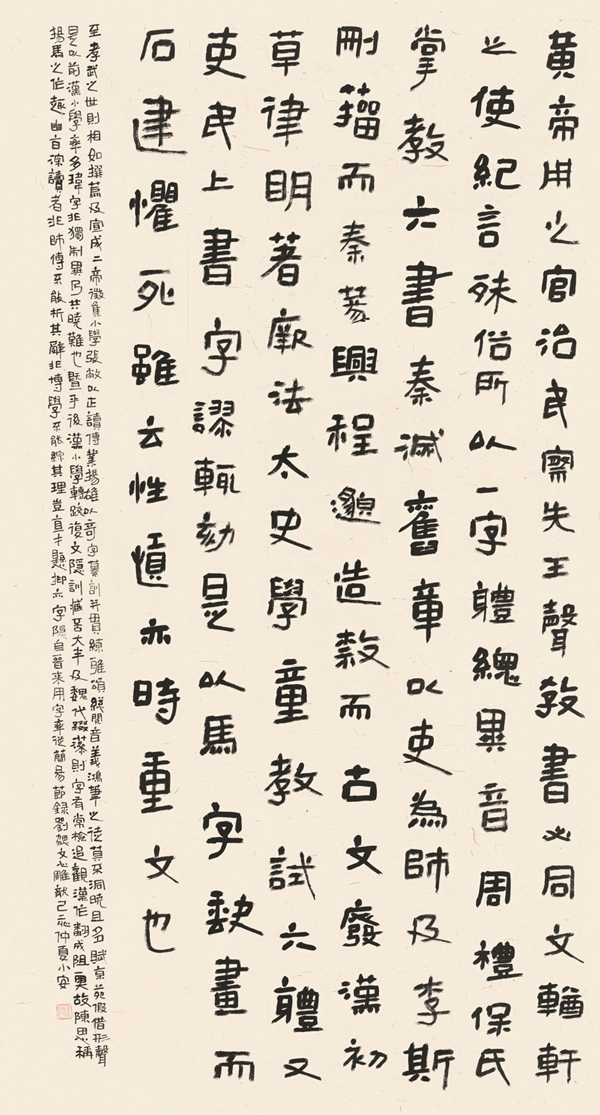 黃帝用之官治民察先王聲教書必同文輶軒
之使紀言殊俗所以一字體總異音周禮保氏
掌教六書秦滅舊章以吏為師及李斯
刪籀而秦篆興程邈造隸而古文廢漢初
草律明著厥法太史學童教試六體又
吏民上書字謬輒劾是以馬字缺畫而
石建懼死雖云性慎亦時重文也
至孝武之世則相如撰篇及宣成二帝徵集小學張敞以正讀傳業揚雄以奇字纂訓並貫練雅頌總閱音義鴻筆之徒莫不洞曉且多賦京苑假借形聲
是以前漢小學率多瑋字非獨制異乃共曉難也暨乎後漢小學轉疏復文隱訓臧否大半及魏代綴藻則字有常檢追觀漢作翻成阻奧故陳思稱
揚馬之作趣幽旨深讀者非師傅不能析其辭非博學不能綜其理豈直才懸抑亦字隱自晉來用字率從簡易節錄劉勰文心雕龍己亥仲夏小安